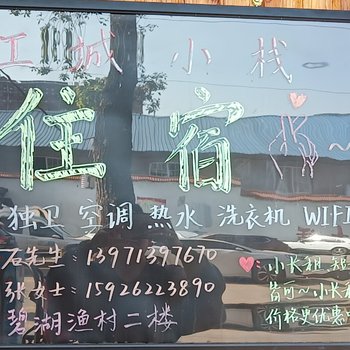 江城小栈
住宿
独卫 空调 热水 洗衣机 WIFI
石先生：13971397670
张女士：15926223890
碧湖渔村二楼
小长租 短
皆可～小长
价格更优惠